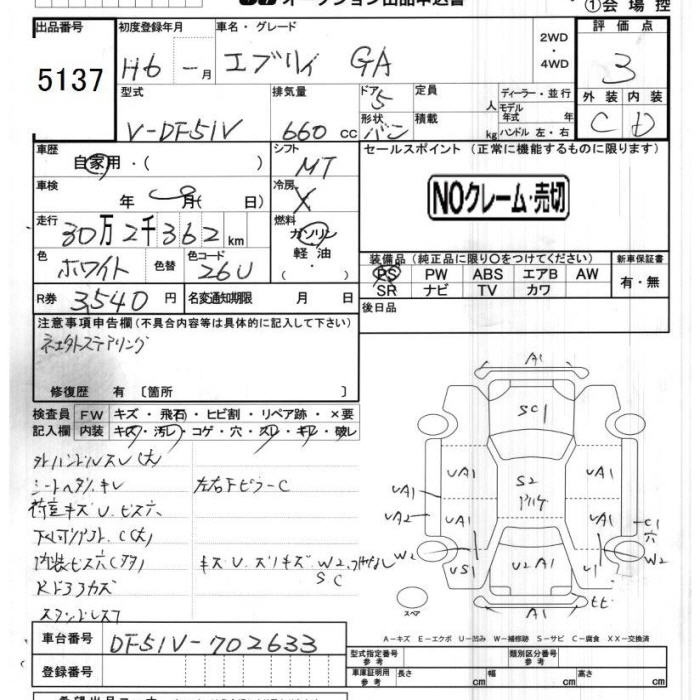 オークション出品申込書
①会場控
出品番号 初度登録年月 車名・グレード 2WD・4WD 評価点
5137 H6 年 月 エブリイ GA 3
型式 排気量 ドア 5 定員 人 ディーラー・並行
モデル年式 年 外装 内装
V-DF51V 660 cc 形状 バン 積載 kg ハンドル 左・右 C D
車歴 自家用・( ) シフト MT セールスポイント (正常に機能するものに限ります)
車検 年 月( 日) 冷房 X
NOクレーム・売切
走行 30万2千362km 燃料 ガソリン・軽油・( )
色 ホワイト 色替 色コード 26U
装備品 (純正品に限り○をつけてください) 新車保証書
PS PW ABS エアB AW 有・無
SR ナビ TV カワ
R券 3,540 円 名変通知期限 月 日 後日品
注意事項申告欄 (不具合内容等は具体的に記入して下さい)
修復歴 有 〔箇所 〕
検査員 FW キズ・飛石・ヒビ割・リペア跡・×要
記入欄 内装 キズ・汚レ・コゲ・穴・スレ・キレ・破レ
外ハンドルスレ(大)
シートヘタリ、キレ 左右下ピラーC
荷室キズU、ビス穴
内装ビス穴(多) キズU、ズリキズ、W2
SC
A1
SC1
UA1 S2 UA1
UA1
UA2 UA1 UA1 C1
穴
W2 W2
US1 U2A1 U1
A1
スペア
A-キズ E-エクボ U-凹み W-補修跡 S-サビ C-腐食 XX-交換済
車台番号 DF51V-702633
型式指定番号 参考 類別区分番号 参考
登録番号 車庫証明用 参考 長さ cm 幅 cm 高さ cm